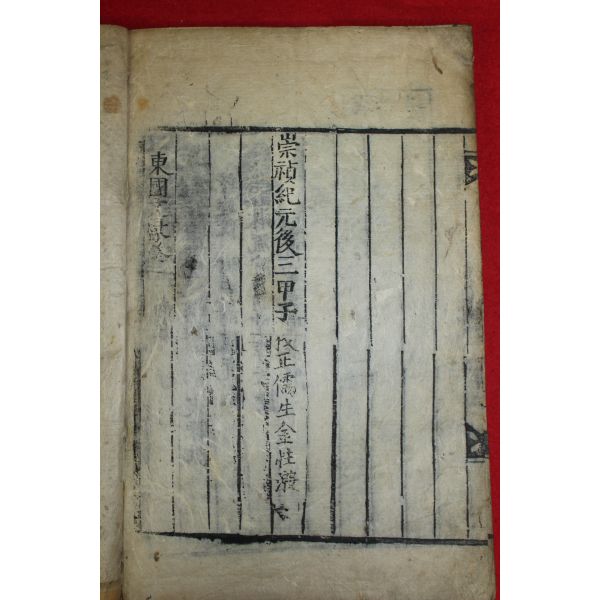 崇禎紀元後三甲子 校正儒生金性灝
東國文獻卷